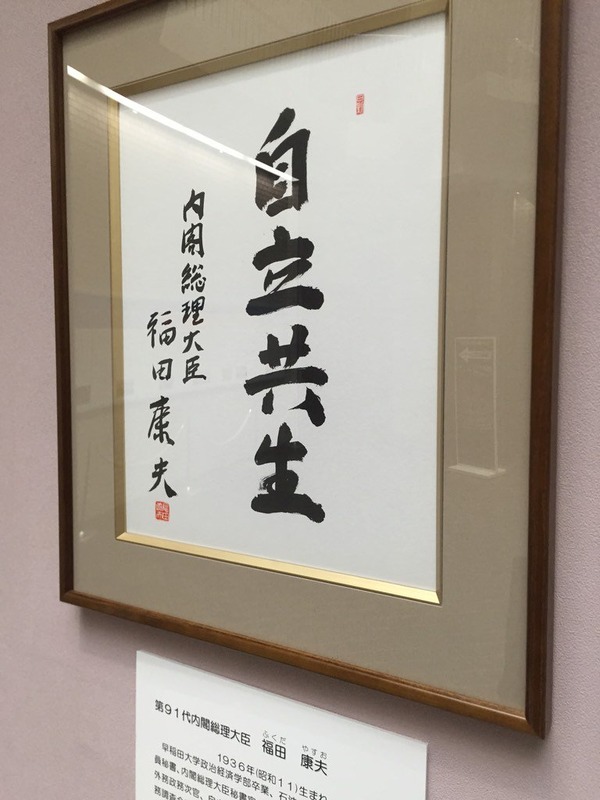 自立共生
内閣総理大臣
福田康夫
第91代内閣総理大臣 福田 康夫
ふくだ やすお
1936年(昭和11)生まれ
早稲田大学政治経済学部卒業、石油
員秘書、内閣総理大臣秘書官
外務政務次官、自
務調査会